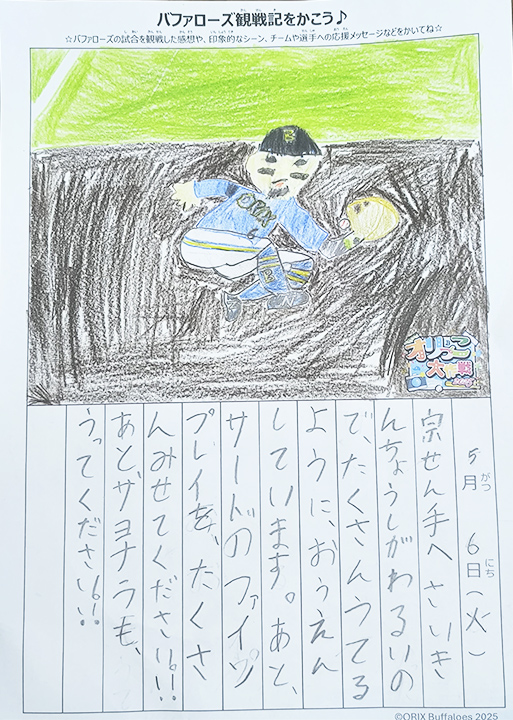 バファローズ観戦記をかこう♪
☆バファローズの試合を観戦した感想や、印象的なシーン、チームや選手への応援メッセージなどをかいてね☆
B
ORIX
B
オリっこ
大作戦
5月 6日(火)
がつ にち
宗せん手へ さいき
んちょうしがわるいの
で、たくさんうてる
ように、おうえん
しています。あと、
サードのファイン
プレイを、たくさ
んみせてください!!
あと、サヨナラも、
うってください!!
©ORIX Buffaloes 2025